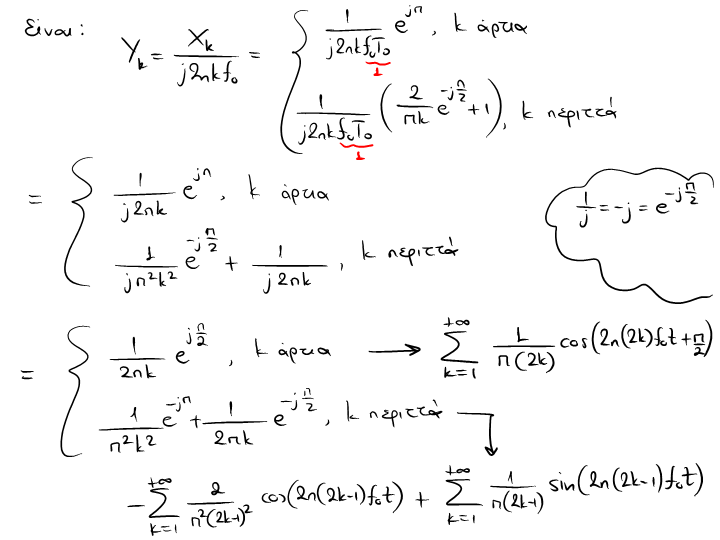 Είναι: Y_k = X_k / (j2πkf₀) = { 1/(j2πkf₀T₀) e^{jπ}, k άρτια
1
1/(j2πkf₀T₀) (2/(πk) e^{-jπ/2} + 1), k περιττά
1
= { 1/(j2πk) e^{jπ}, k άρτια
1/(jπ²k²) e^{-jπ/2} + 1/(j2πk), k περιττά
1/j = -j = e^{-jπ/2}
= { 1/(2πk) e^{jπ/2}, k άρτια → ∑_{k=1}^{+∞} 1/(π(2k)) cos(2π(2k)f₀t + π/2)
1/(π²k²) e^{-jπ} + 1/(2πk) e^{-jπ/2}, k περιττά
-∑_{k=1}^{+∞} 2/(π²(2k-1)²) cos(2π(2k-1)f₀t) + ∑_{k=1}^{+∞} 1/(π(2k-1)) sin(2π(2k-1)f₀t)